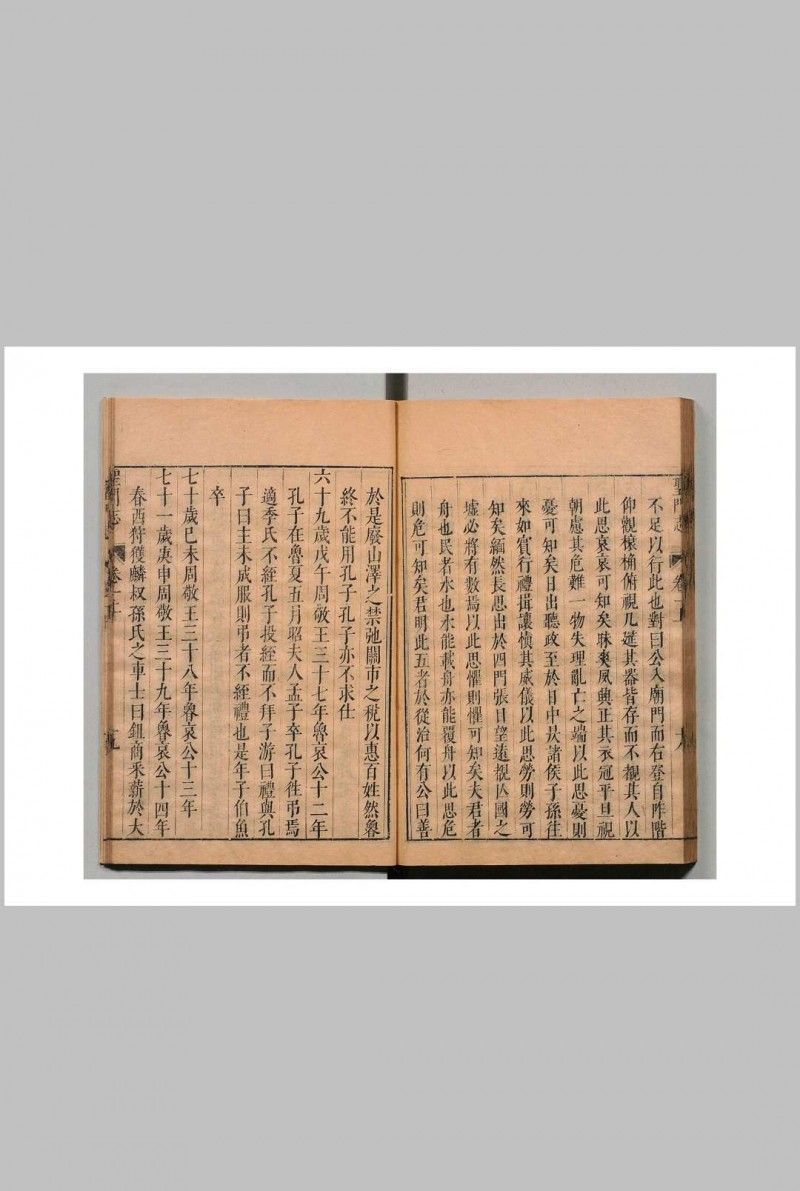 聖門志
卷
不足以行此也對曰公入廟門而右登自阼階
仰觀榱桷俯視几筵其器皆存而不覩其人以
此思哀哀可知矣昧爽夙興正其衣冠平旦視
朝慮其危難一物失理亂亡之端以此思憂則
憂可知矣日出聽政至於日中昃諸侯子孫往
來如賓行禮揖讓慎其威儀以此思勞則勞可
知矣緬然長思出於四門張目望遠覩亾國之
墟必將有數焉以此思懼則懼可知矣夫君者
舟也民者水也水能載舟亦能覆舟以此思危
則危可知矣君明此五者於從治何有公曰善
於是廢山澤之禁弛關市之稅以惠百姓然魯
終不能用孔子孔子亦不求仕
六十九歲戊午周敬王三十七年魯哀公十二年
孔子在魯夏五月昭夫人孟子卒孔子徃弔焉
適季氏不絰孔子投絰而不拜子游曰禮與孔
子曰主未成服則弔者不絰禮也是年子伯魚
卒
七十歲己未周敬王三十八年魯哀公十三年
七十一歲庚申周敬王三十九年魯哀公十四年
春西狩獲麟叔孫氏之車士曰鉏商采薪於大
聖門志
卷
十九